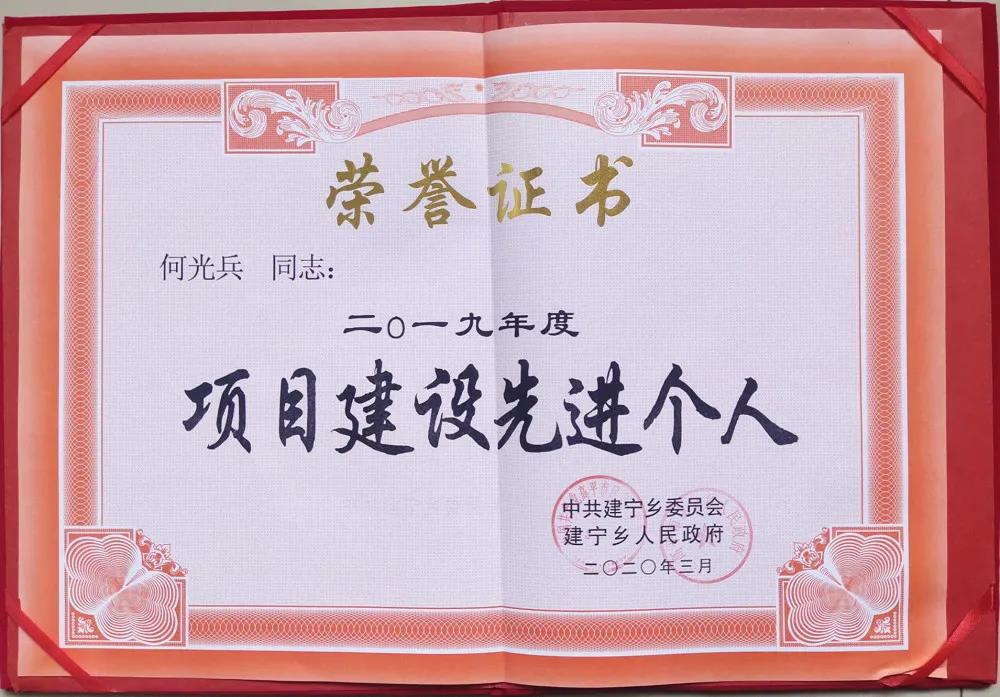 荣誉证书
何光兵 同志：
二〇一九年度
项目建设先进个人
中共建宁乡委员会
建宁乡人民政府
二〇二〇年三月